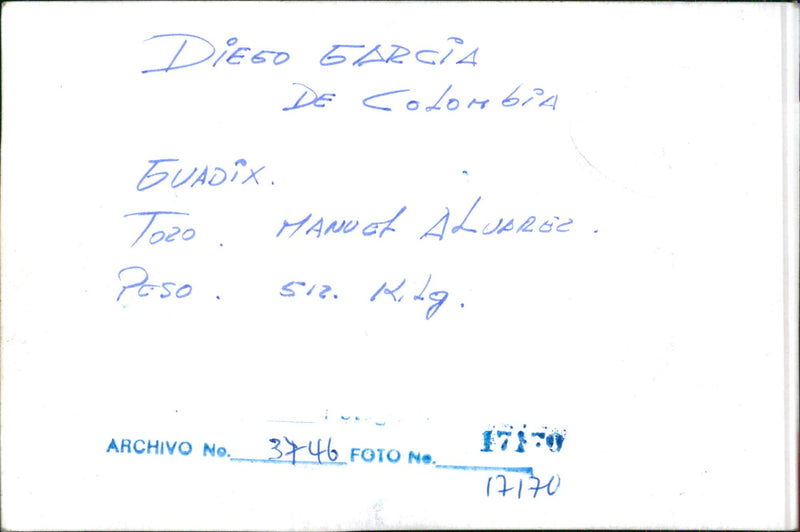 DIEGO GARCIA
DE COLOMBIA
GUADIX.
TORO. MANUEL ALVAREZ.
PESO. 512. Kilg.
ARCHIVO No. 3746 FOTO No. 17170
17170